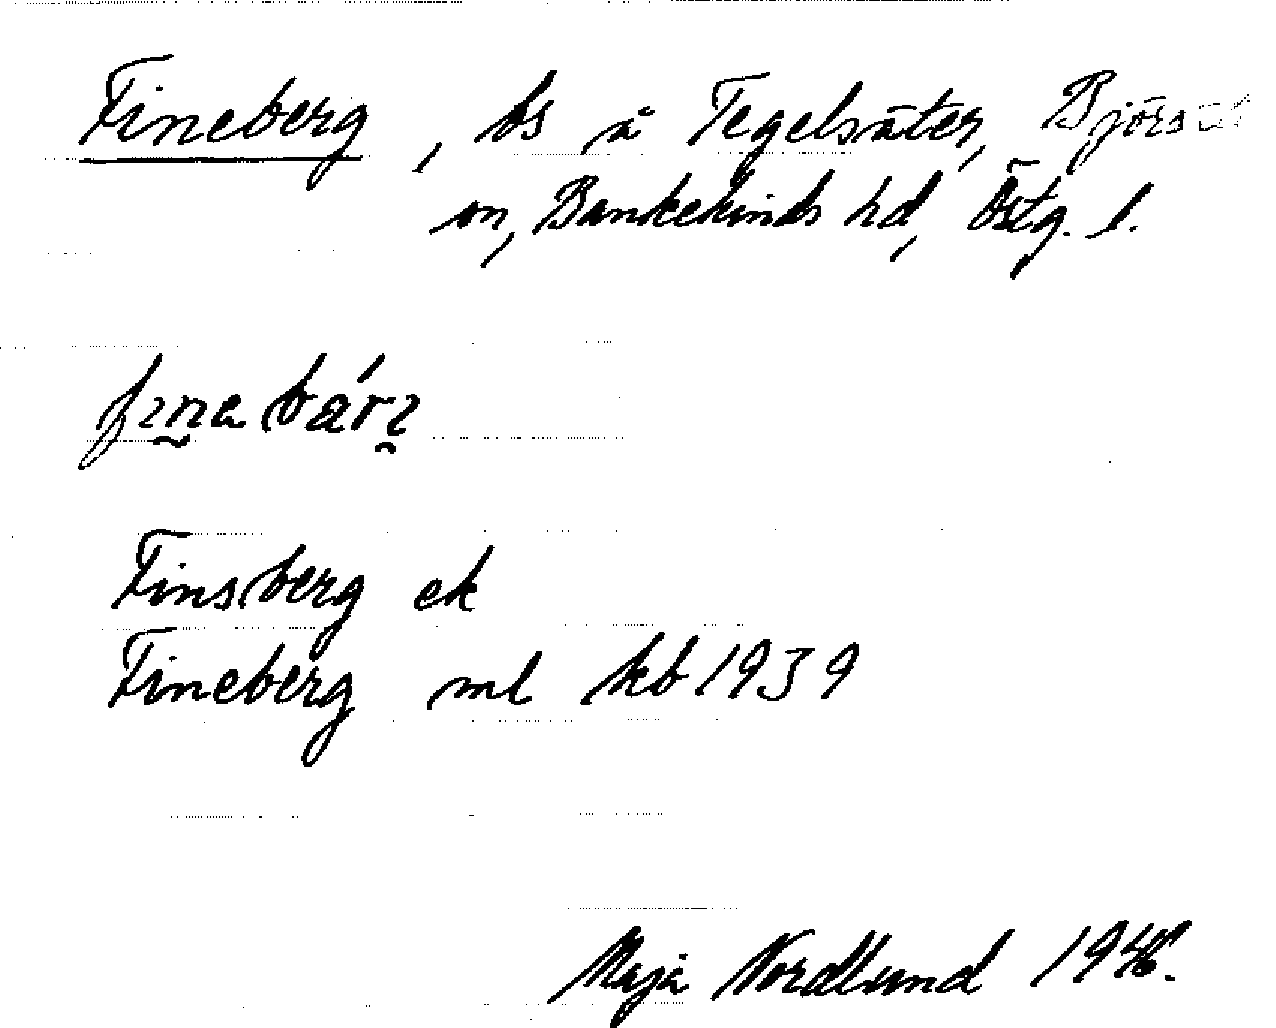 Fineberg, bs å Tegelsäter, Björsät
sn, Bankekinds hd, Östg. l.
Finsberg ek
Fineberg ml kb 1939
Maja Nordlund 1946.